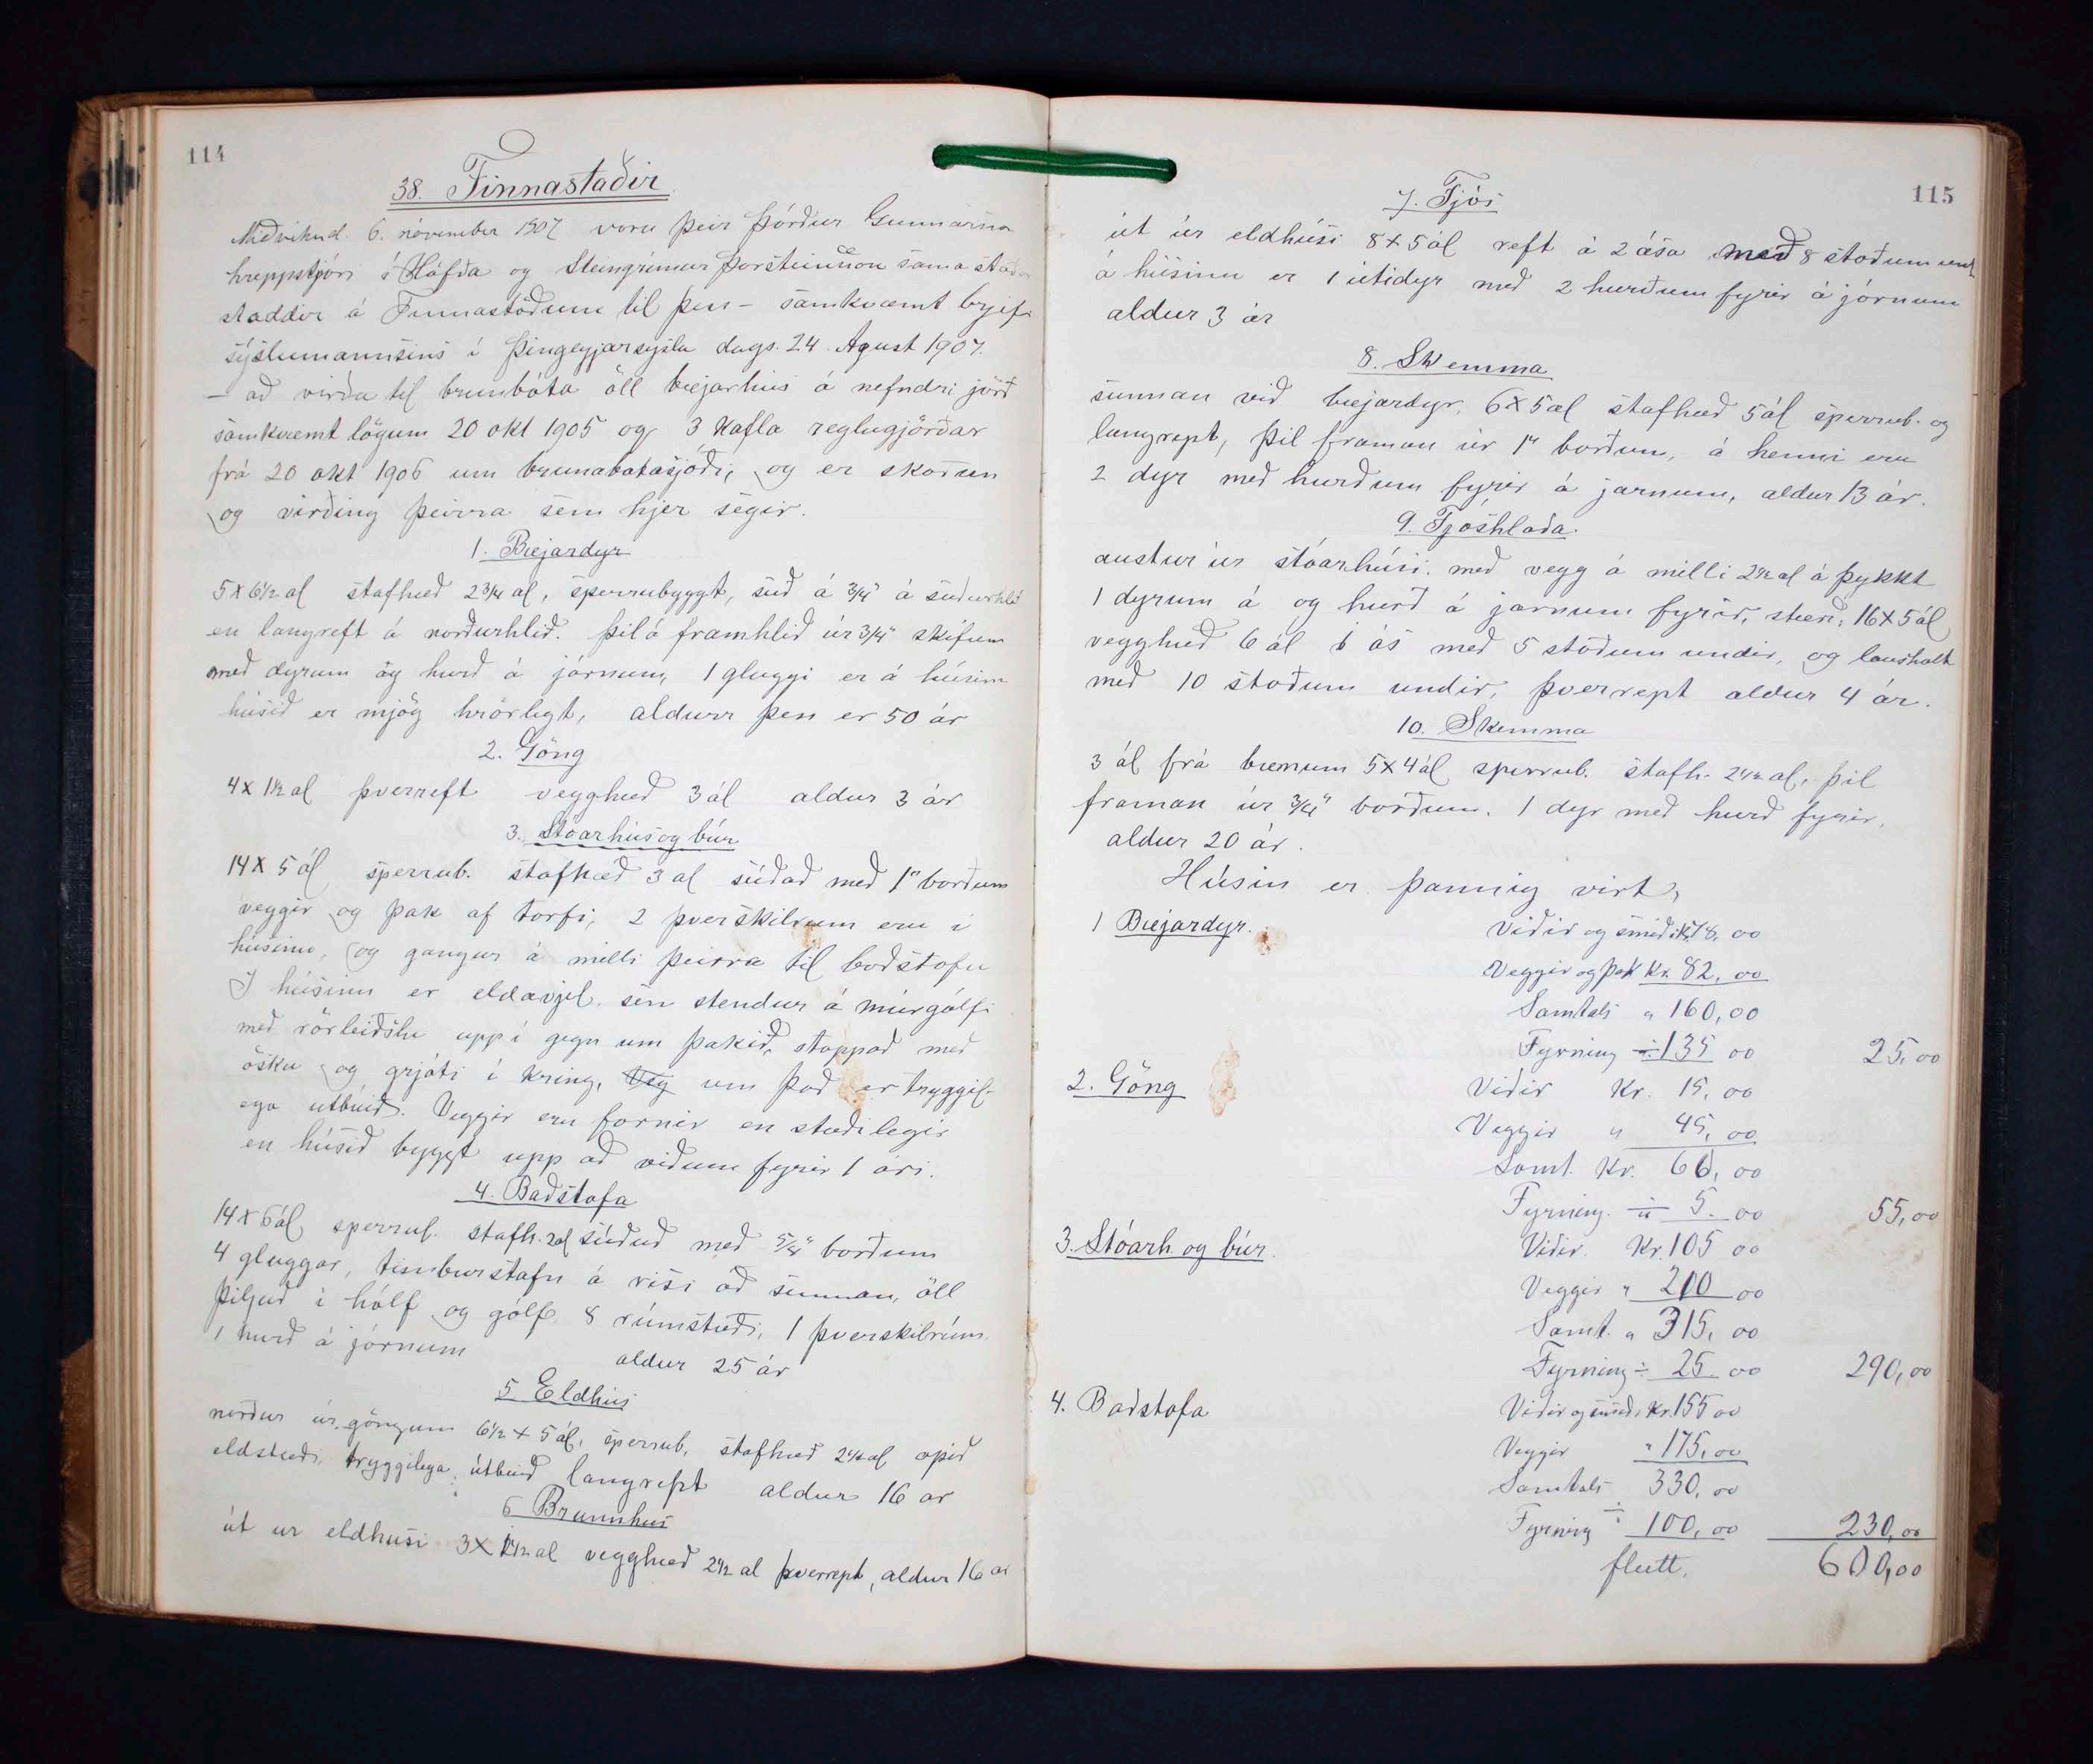 114
38. Finnastaðir
Miðvikud. 6. nóvember 1907 voru þeir Þórður Gunnarsson
hreppstjóri í Höfða og Steingrímur Þorsteinsson sama staðar
staddir á Finnastöðum til þess - samkvæmt brjefi
sýslumannsins í Þingeyjarsýslu dags. 24. Agust 1907.
- að virða til brunabóta öll bæjarhús á nefndri jörð
samkvæmt lögum 20 okt 1905 og 3 kafla reglugjörðar
frá 20 okt 1906 um brunabótasjóði, og er skoðun
og virðing þeirra sem hjer segir.
1. Bæjardyr
5x6½ al stafhæð 2¾ al, sperrubyggt, súð á ¾" á suðurhlið
en langreft á norðurhlið. Þil á framhlið úr ¾" skífum
með dyrum og hurð á járnum, 1 gluggi er á húsinu
húsið er mjög hrörlegt, aldur þess er 50 ár
2. Göng
4x1½ al þverreft vegghæð 3 ál aldur 3 ár
3. Stóarhús og búr
14x5 ál sperrub. stafhæð 3 al súðað með 1" borðum
veggir og þak af torfi, 2 þverskilrúm eru í
húsinu, og gangur á milli þeirra til baðstofu
Í húsinu er eldavjel sem stendur á múrgólfi
með rörleiðslu upp í gegn um þakið, stoppað með
ösku og grjóti í kring, um það er tryggil-
ega útbúið. Veggir eru fornir en stæðilegir
en húsið byggt upp að viðum fyrir 1 ári.
4. Baðstofa
14x6 ál sperrub. stafh. 2al súðuð með 5/4" borðum
4 gluggar, timburstafn á risi að sunnan, öll
þiljuð í hólf og gólf 8 rúmstæði, 1 þverskilrúm
1 hurð á járnum aldur 25 ár
5. Eldhús
norður úr göngum 6½ x 5 ál, sperrub. stafhæð 2½ al opið
eldstæði tryggilega útbúið langrept aldur 16 ár
6 Brunnhús
út ur eldhúsi 3x1½ al vegghæð 2½ al þverrept, aldur 16 ár
115
7. Fjós
út úr eldhúsi 8x5 ál reft á 2 ása með 8 stoðum und
á húsinu er 1 útidyr með 2 hurðum fyrir á járnum
aldur 3 ár
8. Skemma
sunnan við bæjardyr, 6x5 al stafhæð 5 ál sperrub. og
langrept, þil framan úr 1" borðum, á henni eru
2 dyr með hurðum fyrir á járnum, aldur 13 ár.
9. Fjóshlaða
austur úr stóarhúsi. með vegg á milli 2½ al á þykkt
1 dyrum á og hurð á járnum fyrir, stærð: 16x5 ál
vegghæð 6 ál 1 ás með 5 stoðum undir, og laushalt
með 10 stoðum undir, þverrept aldur 4 ár.
10. Skemma
3 ál frá bænum 5x4 ál sperrub. stafh. 2½ al, þil
framan úr ¾" borðum. 1 dyr með hurð fyrir,
aldur 20 ár.
Húsin er þannig virt,
1 Bæjardyr. Viðir og smíði Kr. 78,00
Veggir og þak Kr. 82,00
Samtals „ 160,00
Fyrning ÷ 135 00 25,00
2. Göng Viðir Kr. 15,00
Veggir „ 45,00
Samt. Kr. 60,00
Fyrning. ÷ 5.00 55,00
3. Stóarh og búr. Viðir. Kr. 105 00
Veggir „ 210 00
Samt. „ 315,00
Fyrning ÷ 25.00 290,00
4. Baðstofa Viðir og smíði Kr. 155 00
Veggir „ 175,00
Samtals 330,00
Fyrning ÷ 100,00 230,00
flutt. 600,00